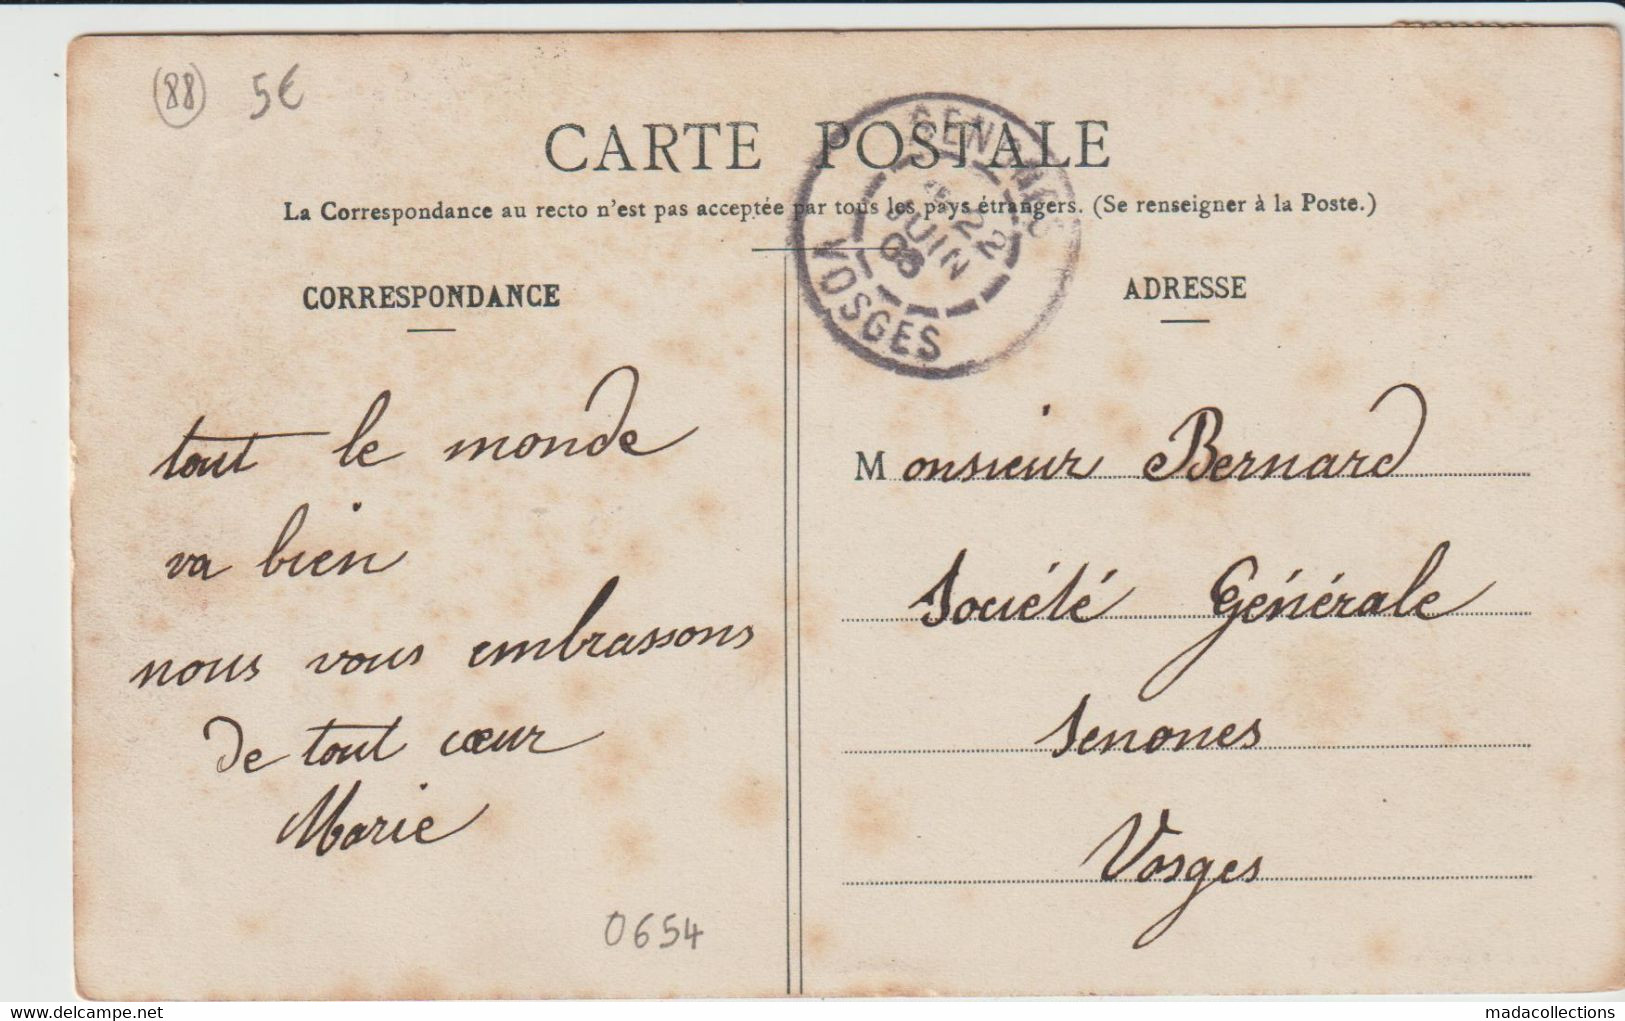 (88) 5€
CARTE POSTALE
La Correspondance au recto n'est pas acceptée par tous les pays étrangers. (Se renseigner à la Poste.)
22
JUIN
VOSGES
CORRESPONDANCE
tout le monde
va bien
nous vous embrassons
de tout cœur
Marie
0654
ADRESSE
Monsieur Bernard
Société Générale
Senones
Vosges
www.delcampe.net
madacollections